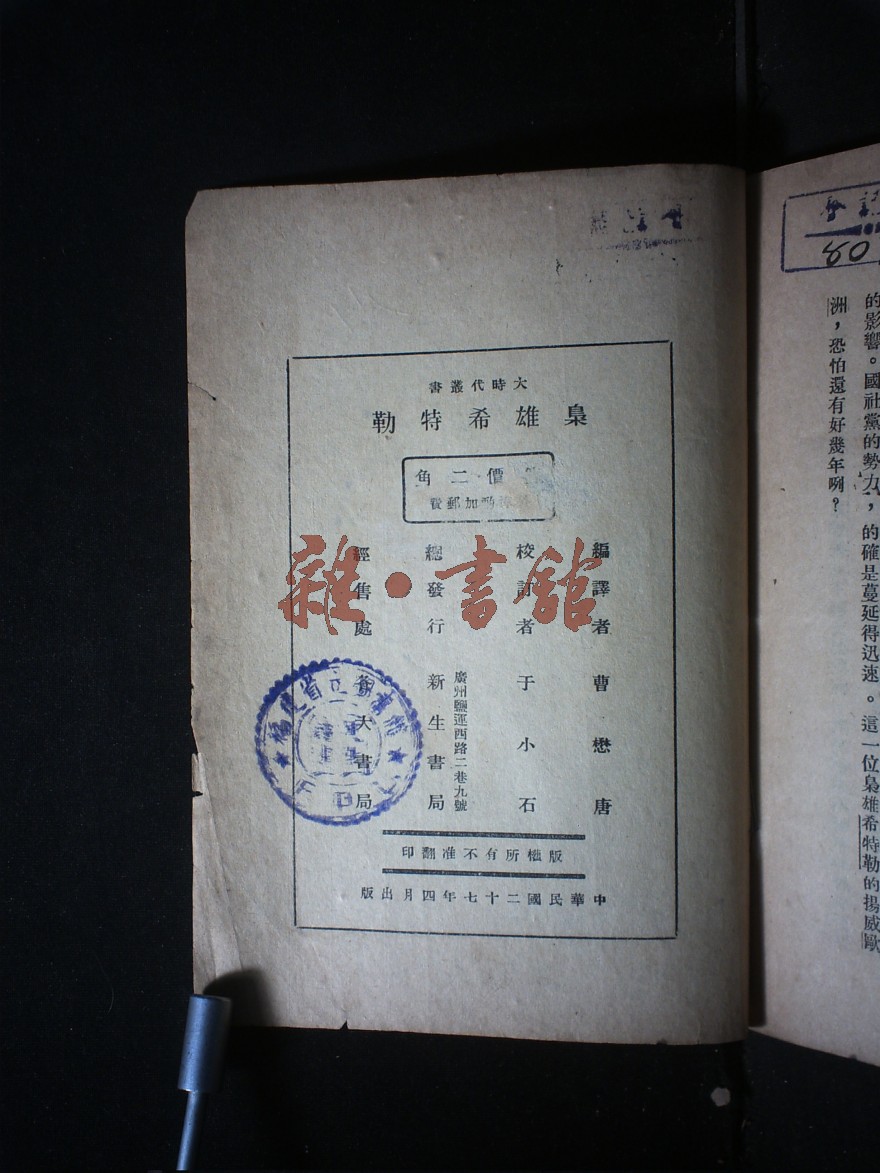 大時代叢書
梟雄希特勒
價二角
加郵費
編譯者 曹懋唐
校訂者 于小石
總發行 新生書局
廣州鹽運西路二巷九號
經售處 各大書局
版權所有不准翻印
中華民國二十七年四月出版
雜·書舘
80
的影響。國社黨的勢力,的確是蔓延得迅速。這一位梟雄希特勒的揚威歐
洲,恐怕還有好幾年咧?